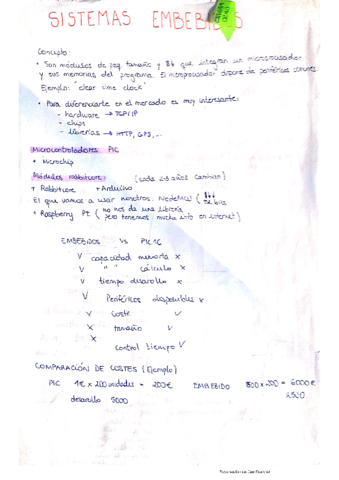 SISTEMAS EMBEBIDOS
Concepto:
• Son módulos de peq. tamaño y que integran un microprocesador
y sus memorias del programa. El microprocesador dispone de periféricos comunes.
Ejemplo: "clear time clock"
• Para diferenciarte en el mercado es muy interesante:
- hardware → TCP/IP
- chips
- librerías → HTTP, GPS, ...
Microcontroladores PIC
+ Microchip
Módulos rabbitcore: (cada 2-3 años cambian)
+ Rabbitcore + Arduino
El que vamos a usar nosotros: NodeMCU
+ Raspberry PI ( no nos da una librería
pero tenemos mucha info en internet)
EMBEBIDOS VS PIC 16
V capacidad memoria x
V " " cálculo x
V tiempo desarrollo x
V Periféricos disponibles x
V Coste V
X tamaño V
X control tiempo V
COMPARACIÓN DE COSTES (Ejemplo)
PIC 1€ x 200 unidades = 200€ EMBEBIDO = 6000€
desarrollo 5000 2500